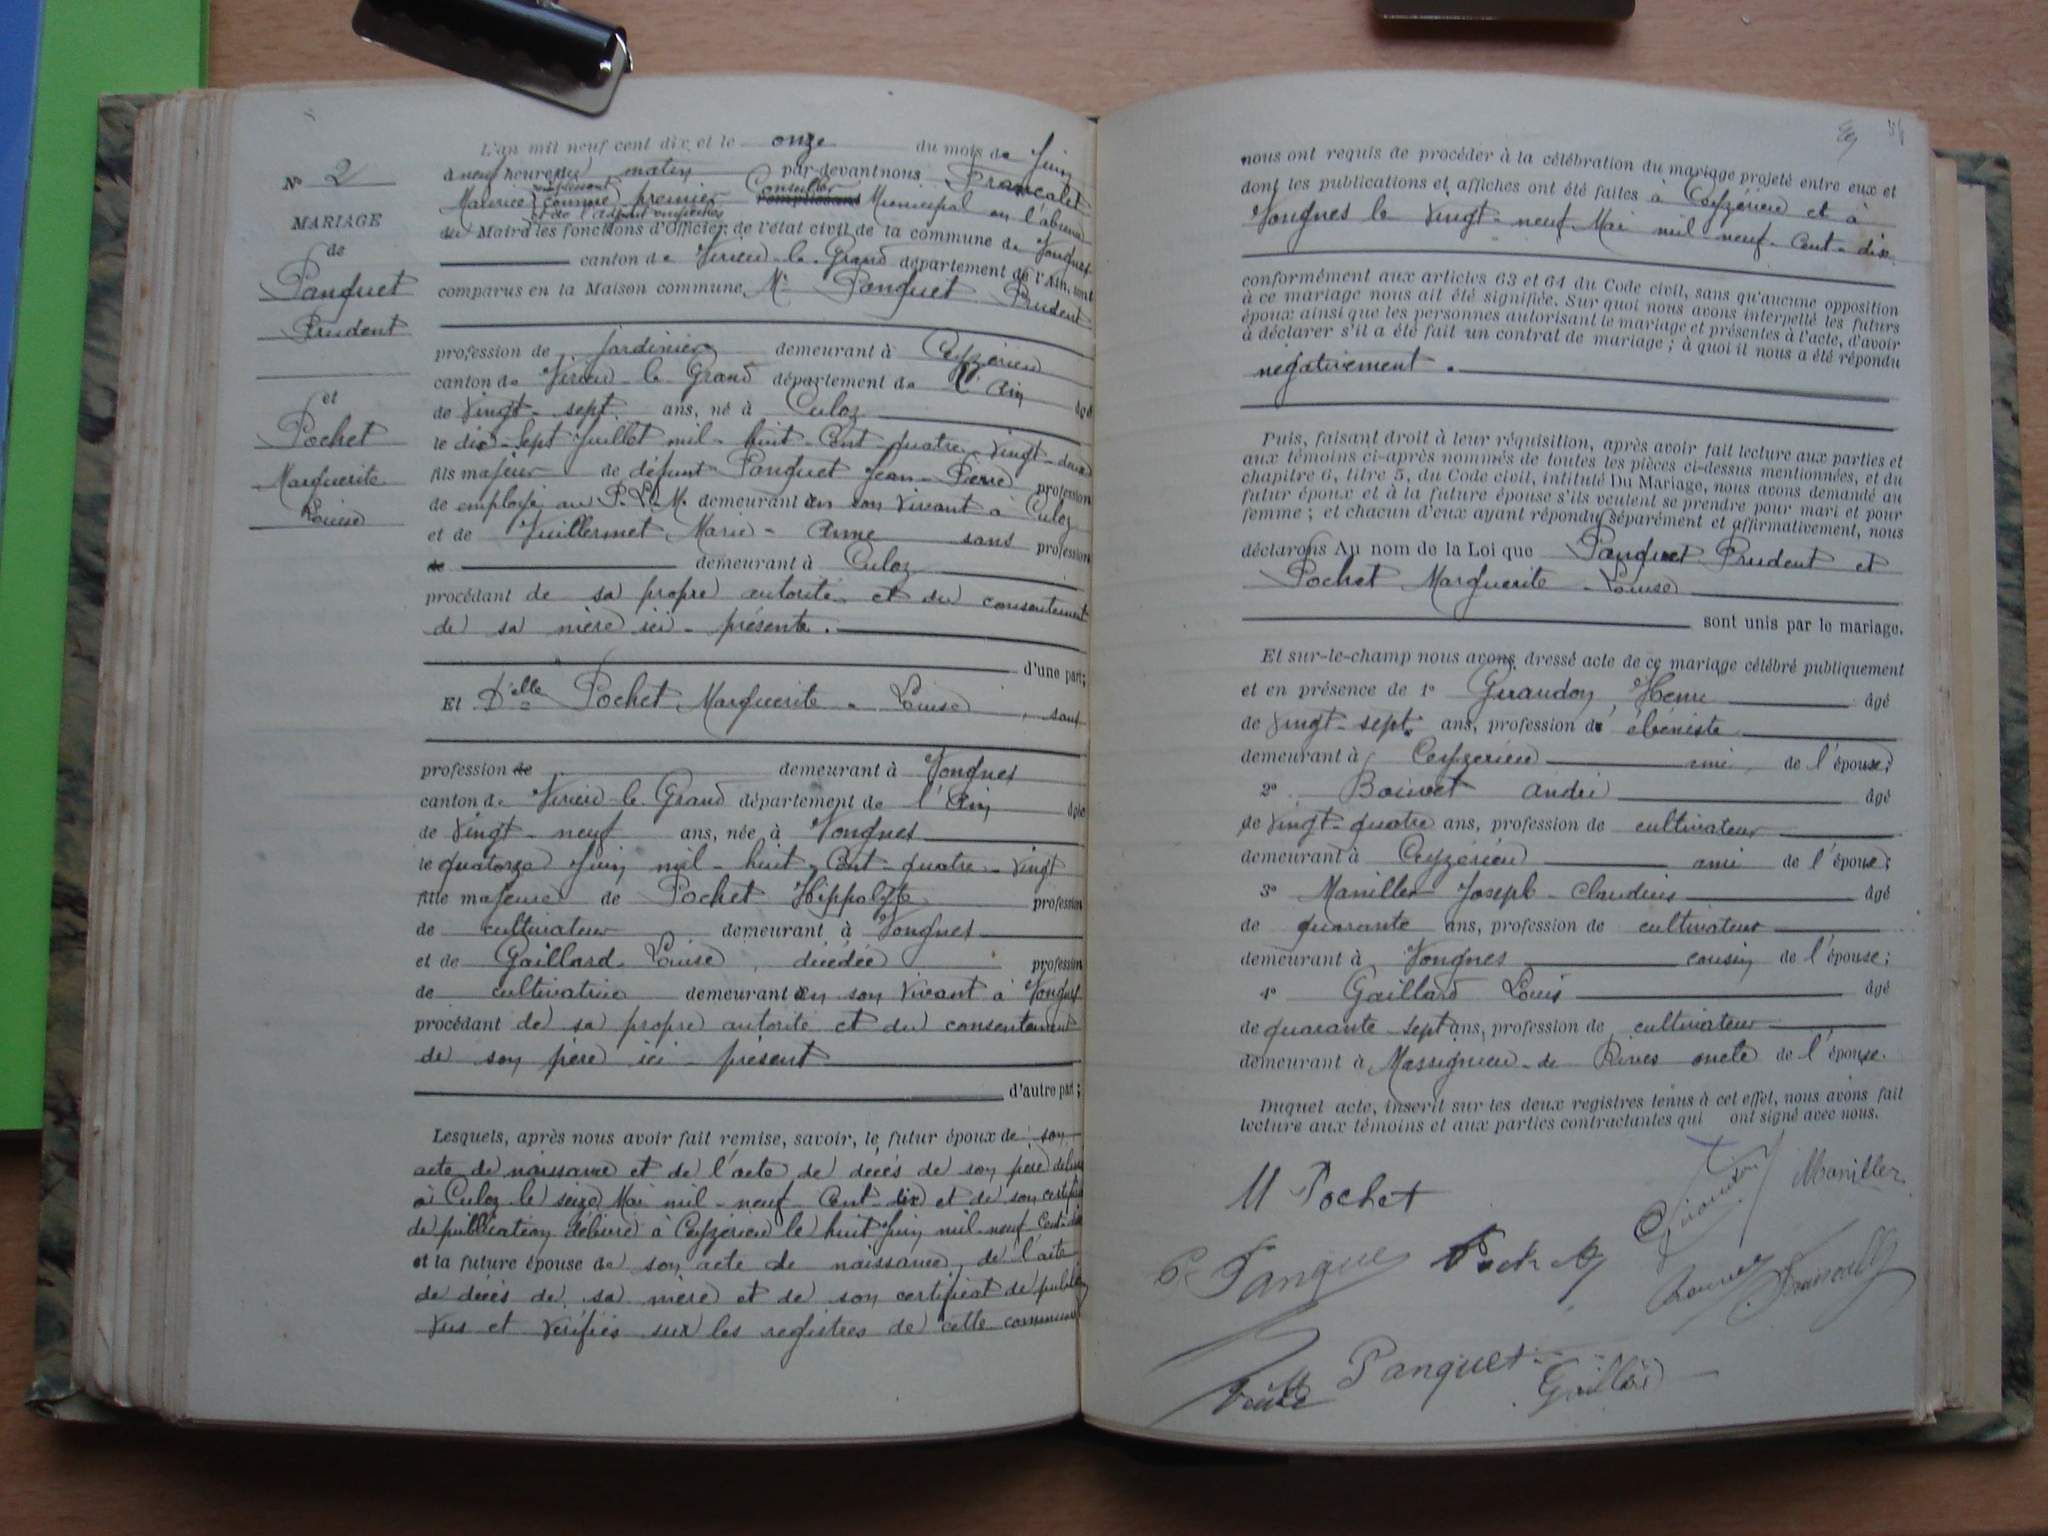 N° 2
MARIAGE
de
Panguet
Prudent
et
Pochet
Marguerite
Louise
L'an mil neuf cent dix et le onze du mois de Juin
à neuf heures du matin par-devant nous Francalet
Maurice remplissant comme premier Conseiller Municipal en l'absence
et de l'adjoint empêchés
du Maire les fonctions d'Officier de l'état civil de la commune de Vongnes
canton de Virieu-le-Grand département de l'Ain, sont
comparus en la Maison commune, Mr Panguet Prudent
profession de Jardinier demeurant à Ceyzérieu
canton de Virieu-le-Grand département de l'Ain âgé
de Vingt-sept ans, né à Culoz
le dix-sept Juillet mil-huit-cent quatre-vingt-deux
fils majeur de défunt Panguet Jean-Pierre profession
de employé au P.L.M. demeurant en son vivant à Culoz
et de Vuillermet Marie-Anne sans profession
de demeurant à Culoz
procédant de sa propre autorité et du consentement
de sa mère ici-présente.
d'une part;
Et Delle Pochet Marguerite-Louise, sans
profession de demeurant à Vongnes
canton de Virieu-le-Grand département de l'Ain âgée
de Vingt-neuf ans, née à Vongnes
le quatorze Juin mil-huit-Cent-quatre-Vingt
fille majeure de Pochet Hippolyte profession
de cultivateur demeurant à Vongnes
et de Gaillard Louise, décédée profession
de cultivatrice demeurant en son vivant à Vongnes
procédant de sa propre autorité et du consentement
de son père ici-présent
d'autre part;
Lesquels, après nous avoir fait remise, savoir, le futur époux de son
acte de naissance et de l'acte de décès de son père délivré
à Culoz le seize Mai mil-neuf-Cent-dix et de son certificat
de publication délivré à Ceyzérieu le huit Juin mil-neuf-Cent-dix
et la future épouse de son acte de naissance, de l'acte
de décès de sa mère et de son certificat de publication
Vus et vérifiés sur les registres de cette commune
nous ont requis de procéder à la célébration du mariage projeté entre eux et
dont les publications et affiches ont été faites à Ceyzérieu et à
Vongnes le Vingt-neuf Mai mil-neuf-Cent-dix
conformément aux articles 63 et 64 du Code civil, sans qu'aucune opposition
à ce mariage nous ait été signifiée. Sur quoi nous avons interpellé les futurs
époux ainsi que les personnes autorisant le mariage et présentes à l'acte, d'avoir
à déclarer s'il a été fait un contrat de mariage; à quoi il nous a été répondu
négativement.
Puis, faisant droit à leur réquisition, après avoir fait lecture aux parties et
aux témoins ci-après nommés de toutes les pièces ci-dessus mentionnées, et du
chapitre 6, titre 5, du Code civil, intitulé Du Mariage, nous avons demandé au
futur époux et à la future épouse s'ils veulent se prendre pour mari et pour
femme; et chacun d'eux ayant répondu séparément et affirmativement, nous
déclarons Au nom de la Loi que Panguet Prudent et
Pochet Marguerite-Louise
sont unis par le mariage.
Et sur-le-champ nous avons dressé acte de ce mariage célébré publiquement
et en présence de 1° Giraudon, Henri âgé
de vingt-sept ans, profession d'ébéniste
demeurant à Ceyzérieu ami de l'épouse;
2° Bouvet André âgé
de Vingt-quatre ans, profession de cultivateur
demeurant à Ceyzérieu ami de l'épouse;
3° Maniller Joseph-Claudius âgé
de quarante ans, profession de cultivateur
demeurant à Vongnes cousin de l'épouse;
4° Gaillard Louis âgé
de quarante-sept ans, profession de cultivateur
demeurant à Massignieu-de Rives oncle de l'épouse.
Duquel acte, inscrit sur les deux registres tenus à cet effet, nous avons fait
lecture aux témoins et aux parties contractantes qui ont signé avec nous.
M Pochet
Giraudon
Maniller
P. Panguet
Pochet
Francalet
Panguet
Gaillard